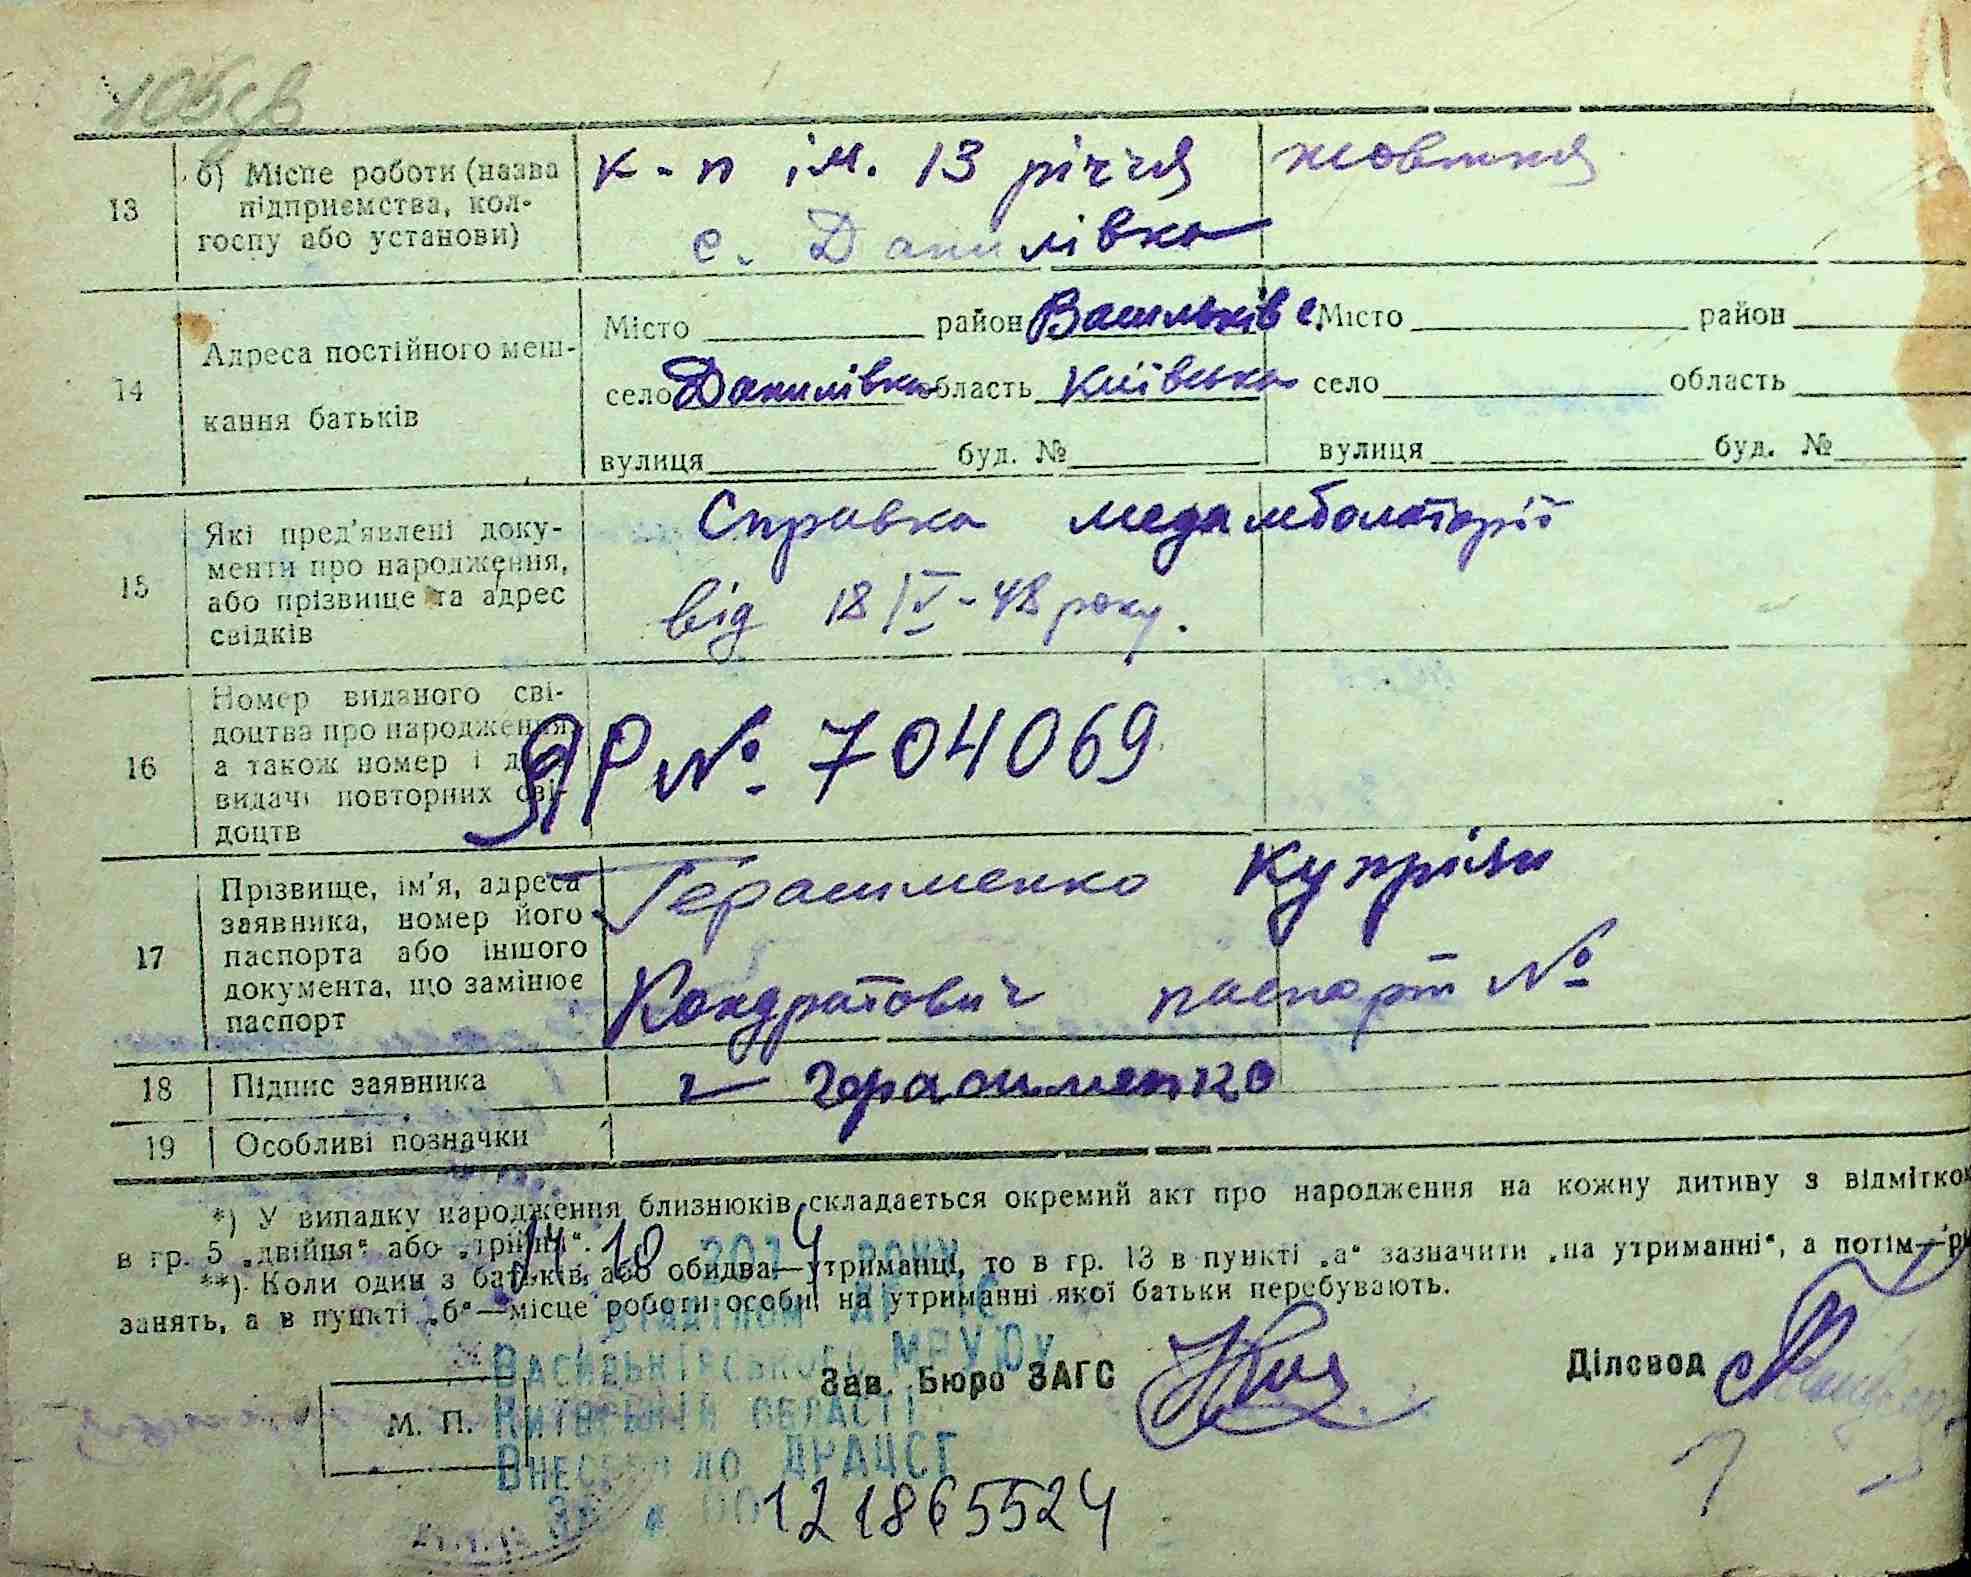 13
б) Місце роботи (назва
підприємства, кол-
госпу або установи)
к-п ім. 13 річчя жовтня
с. Данилівка
14
Адреса постійного меш-
кання батьків
Місто район Васильків с. Місто район
село Данилівка область Київська село область
вулиця буд. № вулиця буд. №
15
Які пред'явлені доку-
менти про народження,
або прізвище та адрес
свідків
Справка медамболаторії
від 18/IV-48 року.
16
Номер виданого сві-
доцтва про народження
а також номер і
видачі повторних сві-
доцтв
ЯР № 704069
17
Прізвище, ім'я, адреса
заявника, номер його
паспорта або іншого
документа, що замінює
паспорт
Герасименко Купріян
Кондратович паспорт №
18 Підпис заявника
Герасименко
19 Особливі позначки
*) У випадку народження близнюків складається окремий акт про народження на кожну дитину з відміткою
в гр. 5 „двійня“ або „трійня“.
14 10 2014 РОКУ
**) Коли один з батьків, або обидва—утриманці, то в гр. 13 в пункті „а“ зазначити „на утриманні“, а потім—рід
занять, а в пункті „б“—місце роботи особи, на утриманні якої батьки перебувають.
ВАСИЛЬКІВСЬКОГО МРУЮ
Зав. Бюро ЗАГС Діловод
М. П.
КИЇВСЬКІЙ ОБЛАСТІ
ВНЕСЕНО ДО ДРАЦСГ
ЗА № 00121865524